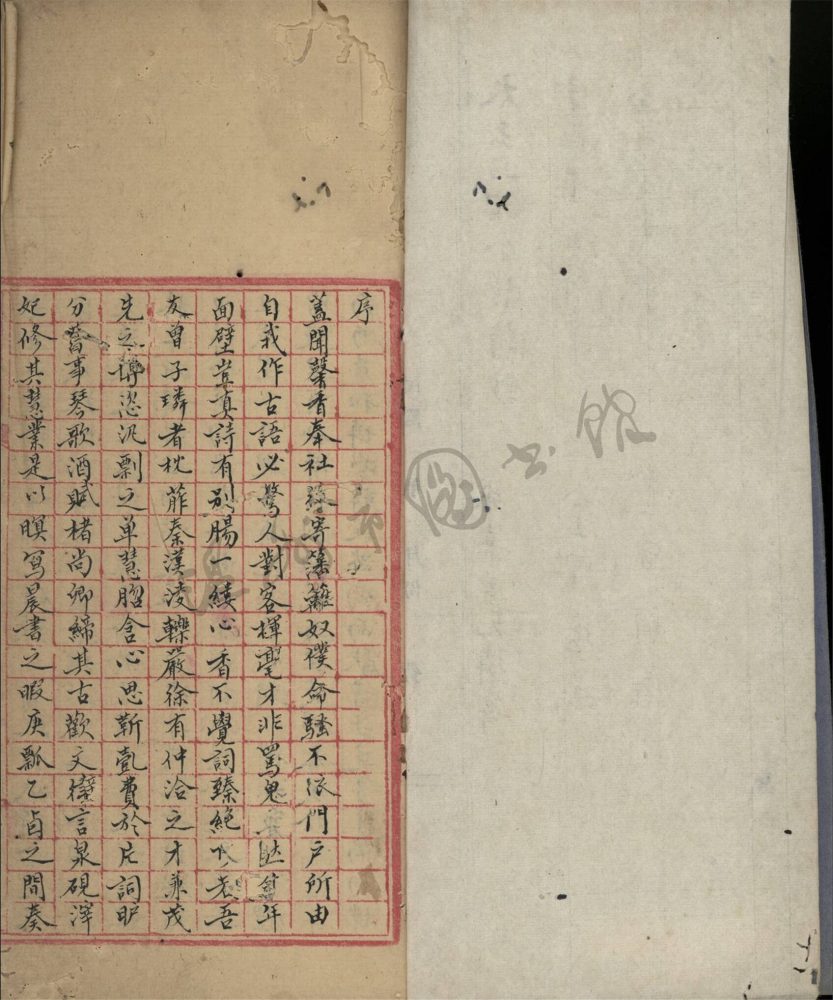 序
蓋聞馨香奉社發寄藩籬奴僕命騷不依門戶所由
自我作古語必驚人對客揮毫才非罵鬼年
面壁豈真詩有別腸一縷心香不覺詞臻絕吾
友曾子璘者枕葄秦漢淩轢嚴徐有仲洽之才兼茂
先之博恣汎剽之單慧腦含心思靳氊費於片詞眆
分奮事琴歌酒賦楮尚卿締其古歡文櫸言泉硯滓
妃修其慧業是以暝寫晨書之暇庚瓢乙卣之間奏